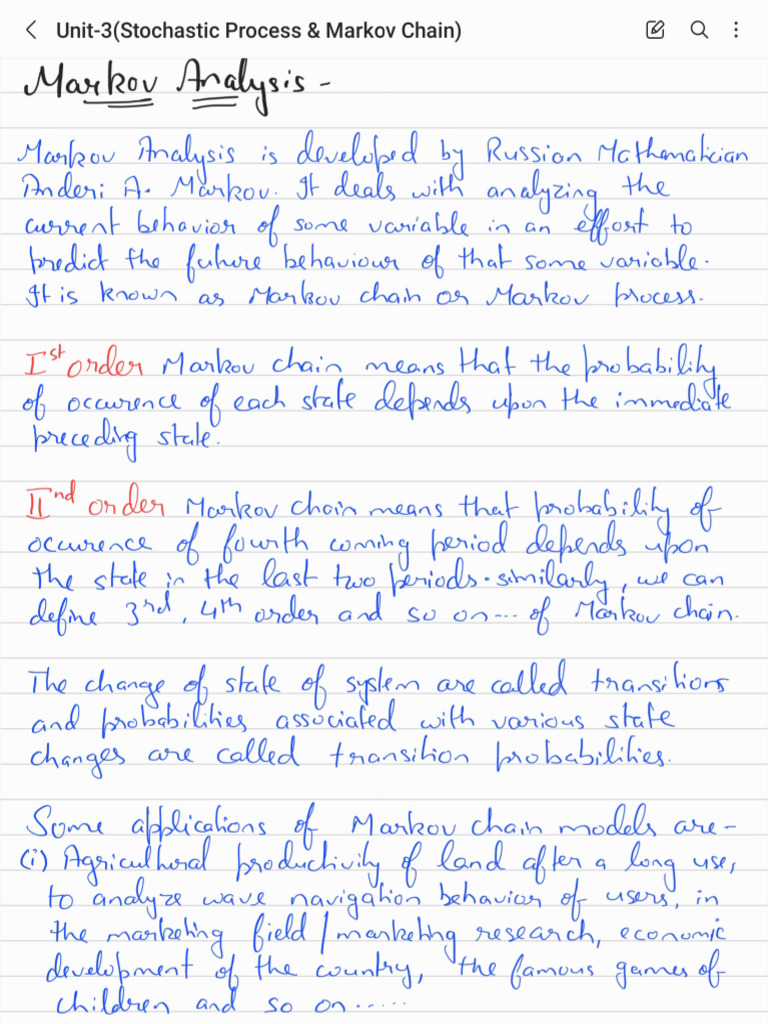 Unit-3(Stochastic Process & Markov Chain)
Markov Analysis -
Markov Analysis is developed by Russion Mathematician
Anderi A. Markov. It deals with analyzing the
current behavior of some variable in an effort to
predict the future behaviour of that some variable.
It is known as Markov chain or Markov process.
Ist order Markov chain means that the probability
of occurence of each state depends upon the immediate
preceding state.
IInd order Markov chain means that probability of
occurence of fourth coming period depends upon
the state in the last two periods. similarly, we can
define 3rd, 4th order and so on--- of Markov chain.
The change of state of system are called transitions
and probabilities associated with various state
changes are called transition probabilities.
Some applications of Markov chain models are-
(i) Agricultural productivity of land after a long use,
to analyze wave navigation behavior of users, in
the marketing field/marketing research, economic
development of the country, the famous games of
children and so on.....